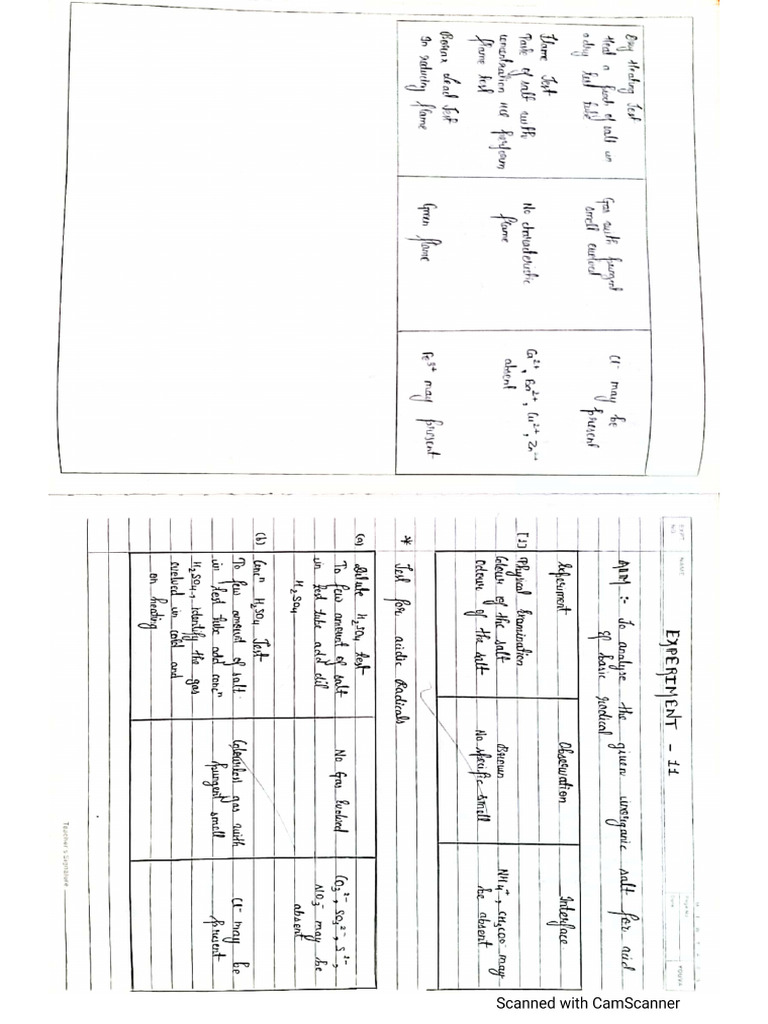 EXPERIMENT - 11
AIM :- To analyse the given inorganic salt for acid
of basic radical
Experiment
Observation
Interface
[1] Physical Examination
Colour of the salt
odour of the salt
Brown
No specific smell
NH4+, CH3COO- may
be absent
* Test for acidic Radicals
(a) Dilute H2SO4 test
To few amount of salt
in test tube add dil
H2SO4
No Gas Evolved
CO3²⁻, SO3²⁻, S²⁻,
NO3⁻ may be
absent
(b) Concⁿ H2SO4 Test
To few amount of salt
in test tube add concⁿ
H2SO4, identify the gas
evolved in cold and
on heating
Colourless gas with
pungent smell
Cl⁻ may be
present
Teacher's Signature
Dry Heating Test
Heat a pinch of salt in
a dry test tube
Gas with pungent
smell evolved
Cl⁻ may be
present
Flame Test
Paste of salt with
concentration HCl perform
flame test
No characteristic
flame
Ca²⁺, Ba²⁺, Cu²⁺, Zn²⁺
absent
Borax Bead Test
In reducing flame
Green flame
Fe³⁺ may present
Scanned with CamScanner